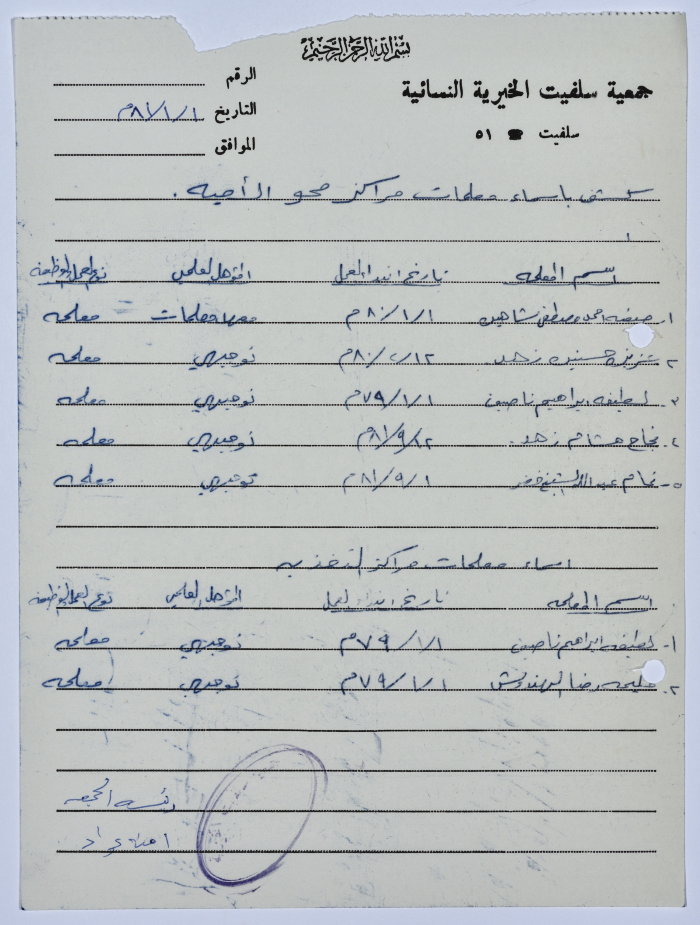 بسم الله الرحمن الرحيم
جمعية سلفيت الخيرية النسائية
سلفيت ☎ ٥١
الرقم
التاريخ ٨١/١/١م
الموافق
كشف باسماء معلمات مراكز محو الأمية.
اسم المعلمه تاريخ ابتداء العمل المؤهل العلمي نوع العمل الوظيفه
١- احمد مصطفى شاهين ٨٠/١/١م معهد معلمات معلمه
٢- حسين زهد ٨٠/٢/١٢م توجيهي معلمه
٣- لطيفه ابراهيم ناصيف ٧٩/١/١م توجيهي معلمه
٤- نجاح هشام زهد ٨١/٩/١٢م توجيهي معلمه
٥- عبد الله توجيهي معلمه ٨١/٩/١م
اسماء معلمات مراكز التغذيه
اسم المعلمه تاريخ ابتداء العمل المؤهل العلمي نوع العمل الوظيفه
١- لطيفه ابراهيم ناصيف ٧٩/١/١م توجيهي معلمه
٢- رضا ٧٩/١/١م توجيهي معلمه
رئيسه الجمعيه